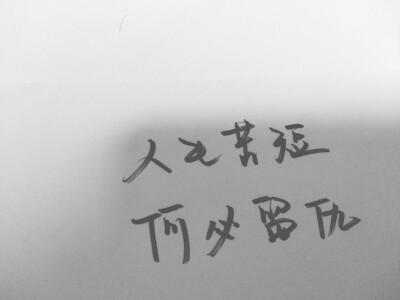 人生苦短
何必留仇